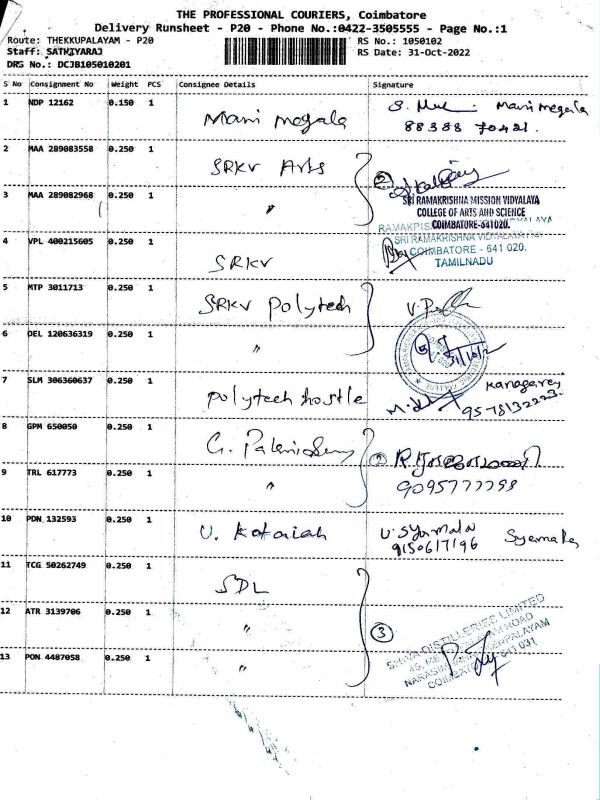 THE PROFESSIONAL COURIERS, Coimbatore
Delivery Runsheet - P20 - Phone No.:0422-3505555 - Page No.:1
Route: THEKKUPALAYAM - P20
RS No.: 1050102
Staff: SATHIYARAJ
RS Date: 31-Oct-2022
DRS No.: DCJB105010201
S No Consignment No Weight PCS Consignee Details Signature
1 NDP 12162 0.150 1 Mani megala Mani megala
88388 70421.
2 MAA 289083558 0.250 1 SRKV Arts 2
3 MAA 289082968 0.250 1 "
SRI RAMAKRISHNA MISSION VIDYALAYA
COLLEGE OF ARTS AND SCIENCE
COIMBATORE-641020.
4 VPL 400215605 0.250 1 SRKV
SRI RAMAKRISHNA VIDYALAYA
COIMBATORE - 641 020.
TAMILNADU
5 MTP 3011713 0.250 1 SRKV Polytech
6 DEL 120636319 0.250 1 "
31/10/2
7 SLM 306360637 0.250 1 polytech hostle Kanagaraj
9578132223
8 GPM 650050 0.250 1 G. Palanisamy
9 TRL 617773 0.250 1 " 9095777798
10 PDN 132593 0.250 1 U. Kotaiah U. Syamala
9150617196
11 TCG 50262749 0.250 1 SDL
12 ATR 3139706 0.250 1 " 3
13 PON 4487058 0.250 1 "
DISTILLERIES LIMITED
ROAD
COIMBATORE 641 031